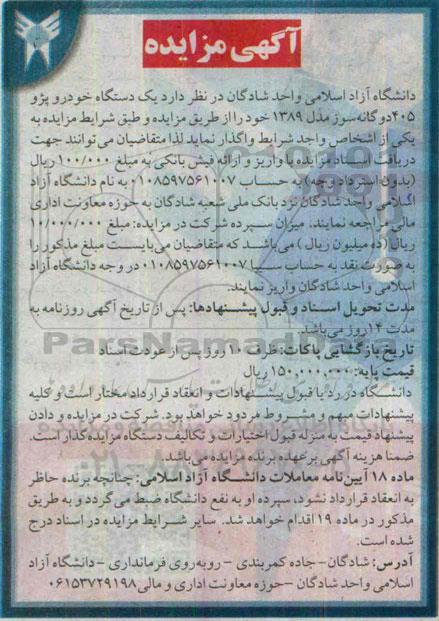 آگهی مزایده
دانشگاه آزاد اسلامی واحد شادگان در نظر دارد یک دستگاه خودرو پژو
۴۰۵دوگانه‌سوز مدل ۱۳۸۹ خود را از طریق مزایده و طبق شرایط مزایده به
یکی از اشخاص واجد شرایط واگذار نماید لذا متقاضیان می توانند جهت
دریافت اسناد مزایده با واریز و ارائه فیش بانکی به مبلغ ۱۰۰/۰۰۰ ریال
(بدون استرداد وجه) به حساب ۰۱۰۸۵۹۷۵۶۱۰۰۷ به نام دانشگاه آزاد
اسلامی واحد شادگان نزد بانک ملی شعبه شادگان به حوزه معاونت اداری
مالی مراجعه نمایند. میزان سپرده شرکت در مزایده: مبلغ ۱۰/۰۰۰/۰۰۰
ریال (ده میلیون ریال ) می‌باشد که متقاضیان می‌بایست مبلغ مذکور را
به صورت نقد به حساب سیبا ۰۱۰۸۵۹۷۵۶۱۰۰۷ در وجه دانشگاه آزاد
اسلامی واحد شادگان واریز نمایند.
مدت تحویل اسناد و قبول پیشنهادها: پس از تاریخ آگهی روزنامه به
مدت ۱۴روز می‌باشد.
تاریخ بازگشایی پاکات: ظرف ۱۰ روز پس از عودت اسناد
قیمت پایه: ۱۵۰,۰۰۰,۰۰۰ ریال
دانشگاه در رد یا قبول پیشنهادات و انعقاد قرارداد مختار است و کلیه
پیشنهادات مبهم و مشروط مردود خواهد بود. شرکت در مزایده و دادن
پیشنهاد قیمت به منزله قبول اختیارات و تکالیف دستگاه مزایده گذار است.
ضمنا هزینه آگهی بر عهده برنده مزایده می‌باشد.
ماده ۱۸ آیین نامه معاملات دانشگاه آزاد اسلامی: چنانچه برنده حاظر
به انعقاد قرارداد نشود، سپرده او به نفع دانشگاه ضبط می‌گردد و به طریق
مذکور در ماده ۱۹ اقدام خواهد شد. سایر شرایط مزایده در اسناد درج
شده است.
آدرس: شادگان -جاده کمربندی - روبه‌روی فرمانداری -دانشگاه آزاد
اسلامی واحد شادگان -حوزه معاونت اداری و مالی ۰۶۱۵۳۷۲۹۱۹۸
ParsNamadData